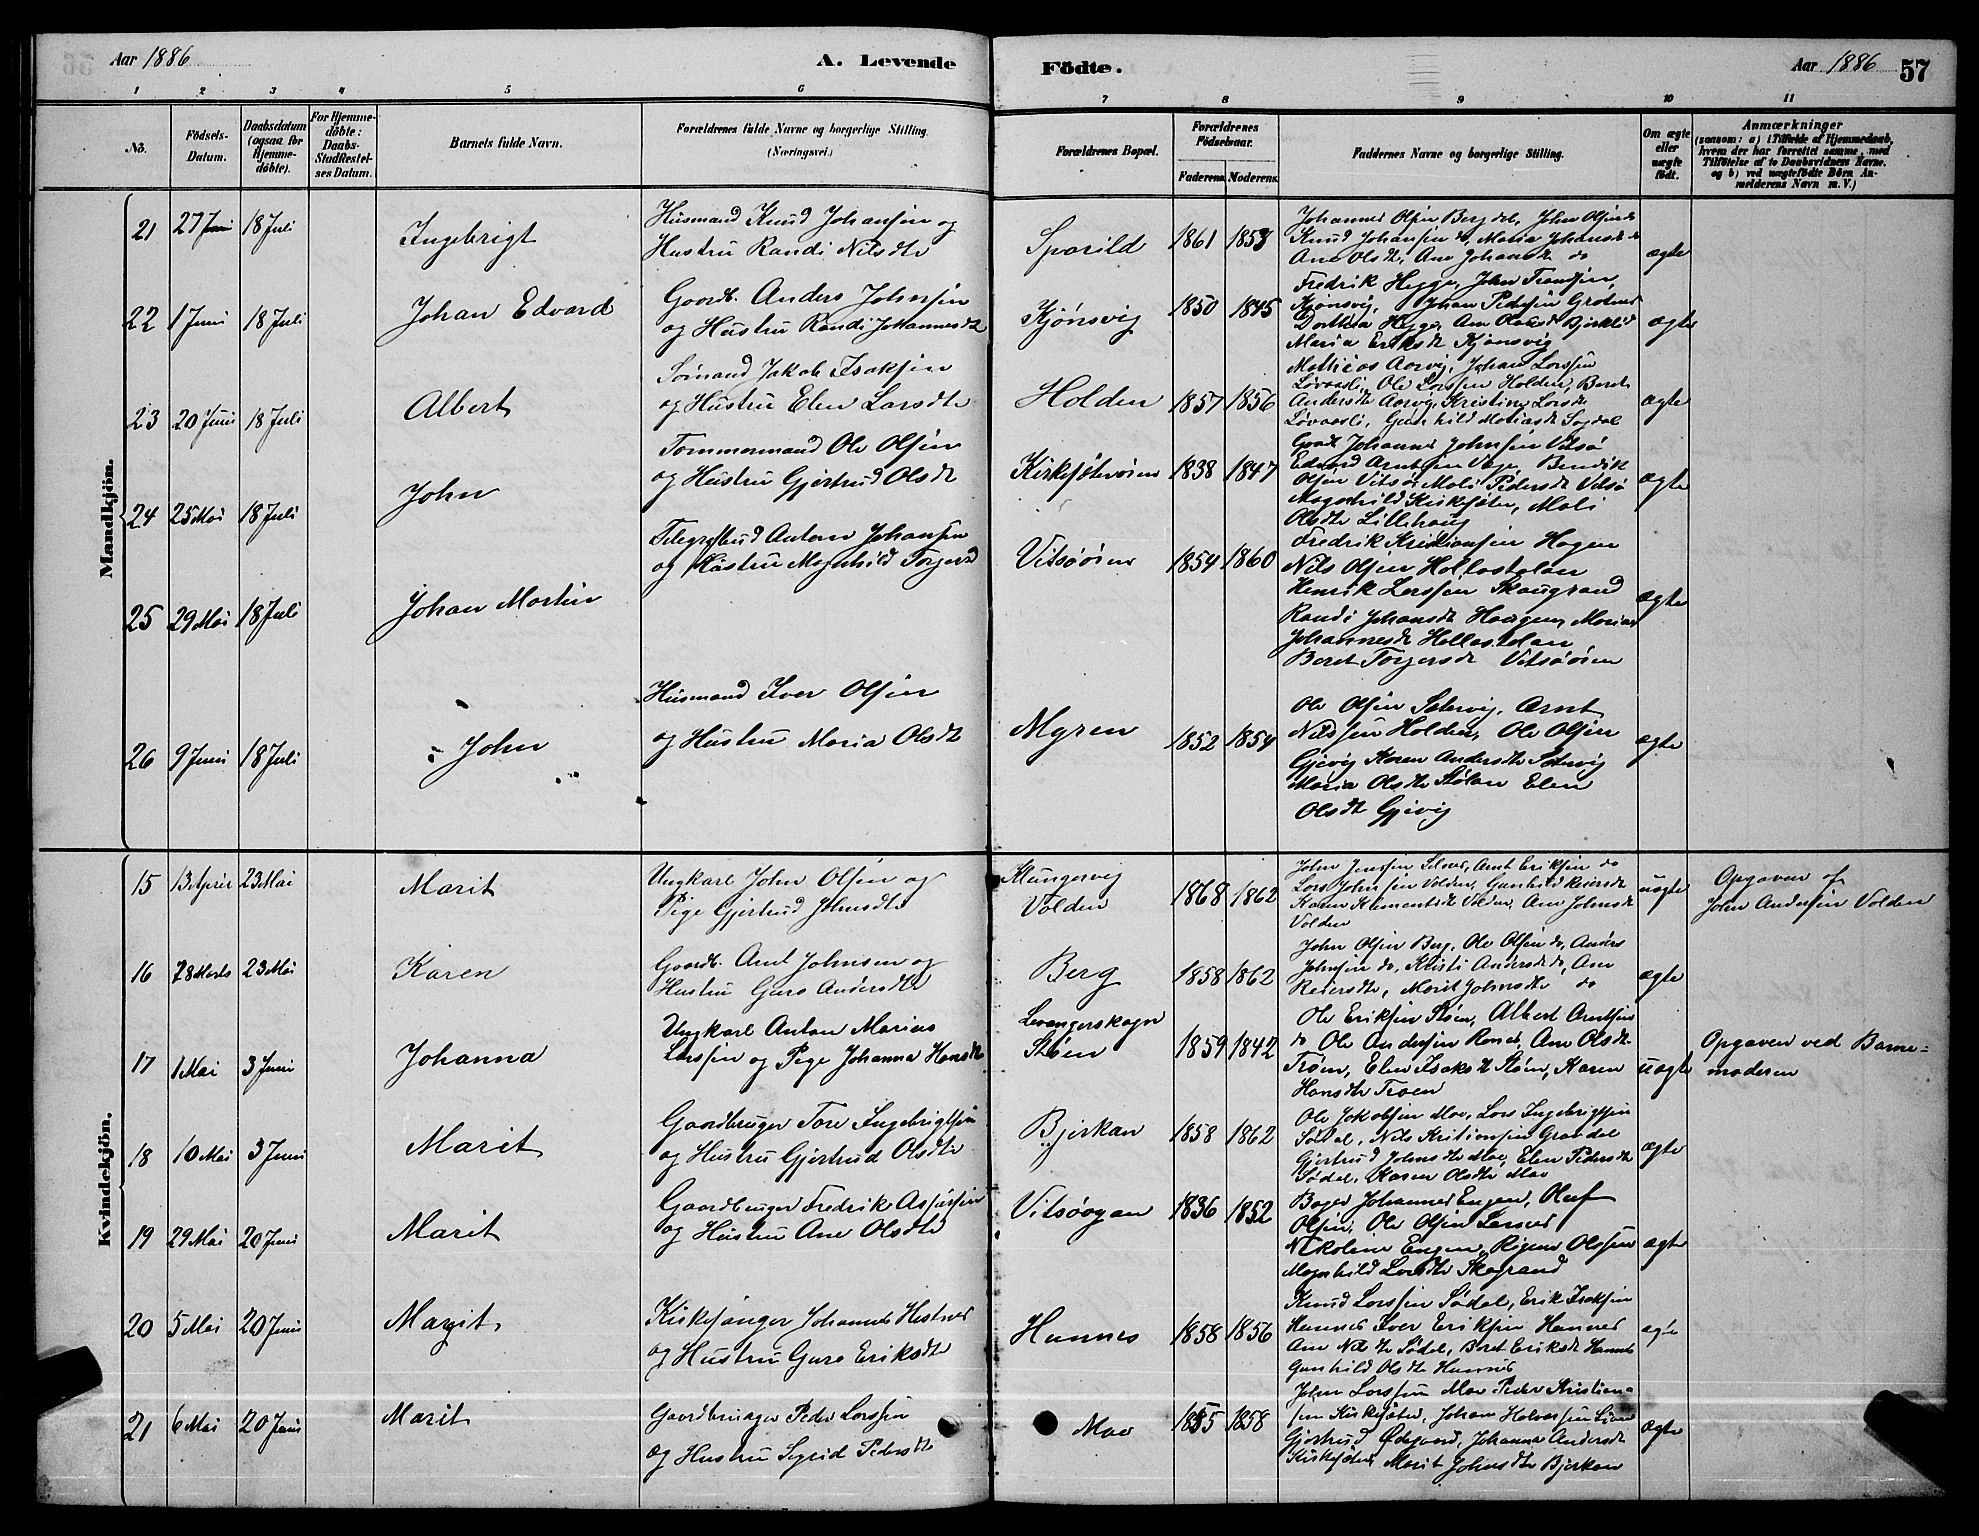 Aar 1886
A. Levende
Födte.
Aar 1886
57
1 2 3 4 5 6 7 8 9 10 11
No.
Födsels-
Datum.
Daabsdatum
(ogsaa for
Hjemme-
döbte).
For Hjemme-
döbte:
Daabs-
Stadfæstel-
ses Datum.
Barnets fulde Navn.
Forældrenes fulde Navne og borgerlige Stilling.
(Næringsvei.)
Forældrenes Bopæl.
Forældrenes
Födselsaar.
Faderens. Moderens.
Faddernes Navne og borgerlige Stilling.
Om ægte
eller
uægte
födt.
Anmærkninger
(saasom: a) i Tilfælde af Hjemmedaab,
hvem der har forrettet samme, med
Tilföielse af to Daabsvidners Navne,
og b) ved uægtefödte Börn An-
melderens Navn m. V.)
Mandkjön.
21 27 Juni 18 Juli
Ingebrigt
Husmand Knud Johansen og
Hustru Randi Nilsdtr
Sporild
1861 1853
Johannes Olsen Bergdal, John Olsen do
Knud Johansen do, Maria Johansdtr do
Ane Olsdtr, Ane Johansdtr do
ægte
22 1 Juni 18 Juli
Johan Edvard
Gaardb. Anders Johnsen
og Hustru Randi Johannesdtr
Kjönsvig
1850 1845
Fredrik Hegge, John Fransen,
Kjönsvig, Johan Pedersen
Dorthea Hegge, Ane Olausdtr Bjerklid
Maria Eriksdtr Kjönsvig
ægte
23 20 Juni 18 Juli
Albert
Sömand Jakob Isaksen
og Hustru Elen Larsdtr
Holden
1857 1856
Mathias Aarvig, Johan Larssen
Lövaasli, Ole Larssen Holden, Beret
Andersdtr Aarvig, Kristine Larsdtr
Lövaasli, Gunhild Matiasdtr Sagdal
ægte
24 25 Mai 18 Juli
John
Tømmermand Ole Olsen
og Hustru Gjertrud Olsdtr
1838 1847
Gaardb Johannes Johnsen Vitsö
Edvard Arntsen Vage, Bendik
Olsen Vitsö, Mali Pedersdtr Vitsö
Magnhild Kirksæter, Mali
Olsdtr Lillehaug
ægte
25 29 Mai 18 Juli
Johan Martin
Telegrafbud Anton Johansen
og Hustru Magnhild Torgersd
Vitsöören
1854 1860
Fredrik Kristiansen Hagen
Nils Olsen Hollastølan
Henrik Larssen Skaugrand
Randi Johansdtr Haagen, Marias
Johannesdtr Hollastølan
Beret Torgersdtr Vitsöören
ægte
26 9 Juni 18 Juli
John
Husmand Iver Olsen
og Hustru Maria Olsdtr
Myren
1852 1854
Ole Olsen Selvig, Arnt
Nilssen Holden, Ole Olsen
Gjevig Karen Andersdtr Selvig
Maria Olsdtr Stölan Elen
Olsdtr Gjevig
ægte
Kvindekjön.
15 13 April 23 Mai
Marit
Ungkarl John Olsen og
Pige Gjertrud Johnsdtr
Klungervig
Volden
1868 1862
John Jenssen Selnes, Arnt Eriksen do
Lars Johnsen Volden, Gunhild Reiersdtr
Karen Klementsdtr Volden, Ane Johnsdtr
Volden
uægte
Opgaven af
John Andersen Volden
16 28 Marts 23 Mai
Karen
Gaardb. Arnt Johnsen og
Hustru Guro Andersdtr
Berg
1858 1862
John Olsen Berg, Ole Olsen do, Anders
Johnsen do, Kristi Andersdtr do, Ane
Reiersdtr, Marit Johnsdtr do
ægte
17 1 Mai 3 Juni
Johanna
Ungkarl Anton Marius
Larssen og Pige Johanna Hansdtr
Levangerskogn
Stöen
1859 1842
Ole Eriksen Stöen, Albert Arntsen
do Ole Andersen Rones, Ane Olsdtr
Tröen, Elen Isaksdtr Stöen, Karen
Hansdtr Troen
uægte
Opgaven ved Barne-
moderen
18 10 Mai 3 Juni
Marit
Gaardbruger Tore Ingebrigtsen
og Hustru Gjertrud Olsdtr
Bjerkan
1858 1862
Ole Jakobsen Moe, Lars Ingebrigtsen
Södal, Nils Kristiansen Grandal
Gjertrud Johnsdtr Moe, Elen Pedersdtr
Södal, Karen Olsdtr Moe
ægte
19 29 Mai 20 Juni
Marit
Gaardbruger Fredrik Assersen
og Hustru Ane Olsdtr
Vitsöogan
1836 1852
Bager Johannes Engen, Oluf
Olsen, Ole Olsen Larsnes
Nikoline Engen, Olssen
Magnhild Larsdtr Skagrand
ægte
20 5 Mai 20 Juni
Margit
Kirkesanger Johannes Hestnes
og Hustru Guro Eriksdtr
Hannes
1858 1856
Knud Larssen Södal, Erik Isaksen
Hannes Iver Eriksen Hannes
Ane Nilsdtr Södal, Beret Eriksdtr Hannes
Gunhild Olsdtr Hannes
ægte
21 6 Mai 20 Juni
Marit
Gaardbruager Peder Larssen
og Hustru Sigrid Pedersdtr
Moe
1855 1858
John Larssen Moe Peder Kristian-
sen Kirksæter, Johan Halvorsen
Gjertrud Ödegaard, Johanna Andersdtr
Kirksæter, Marit Johnsdtr Bjerkan
ægte